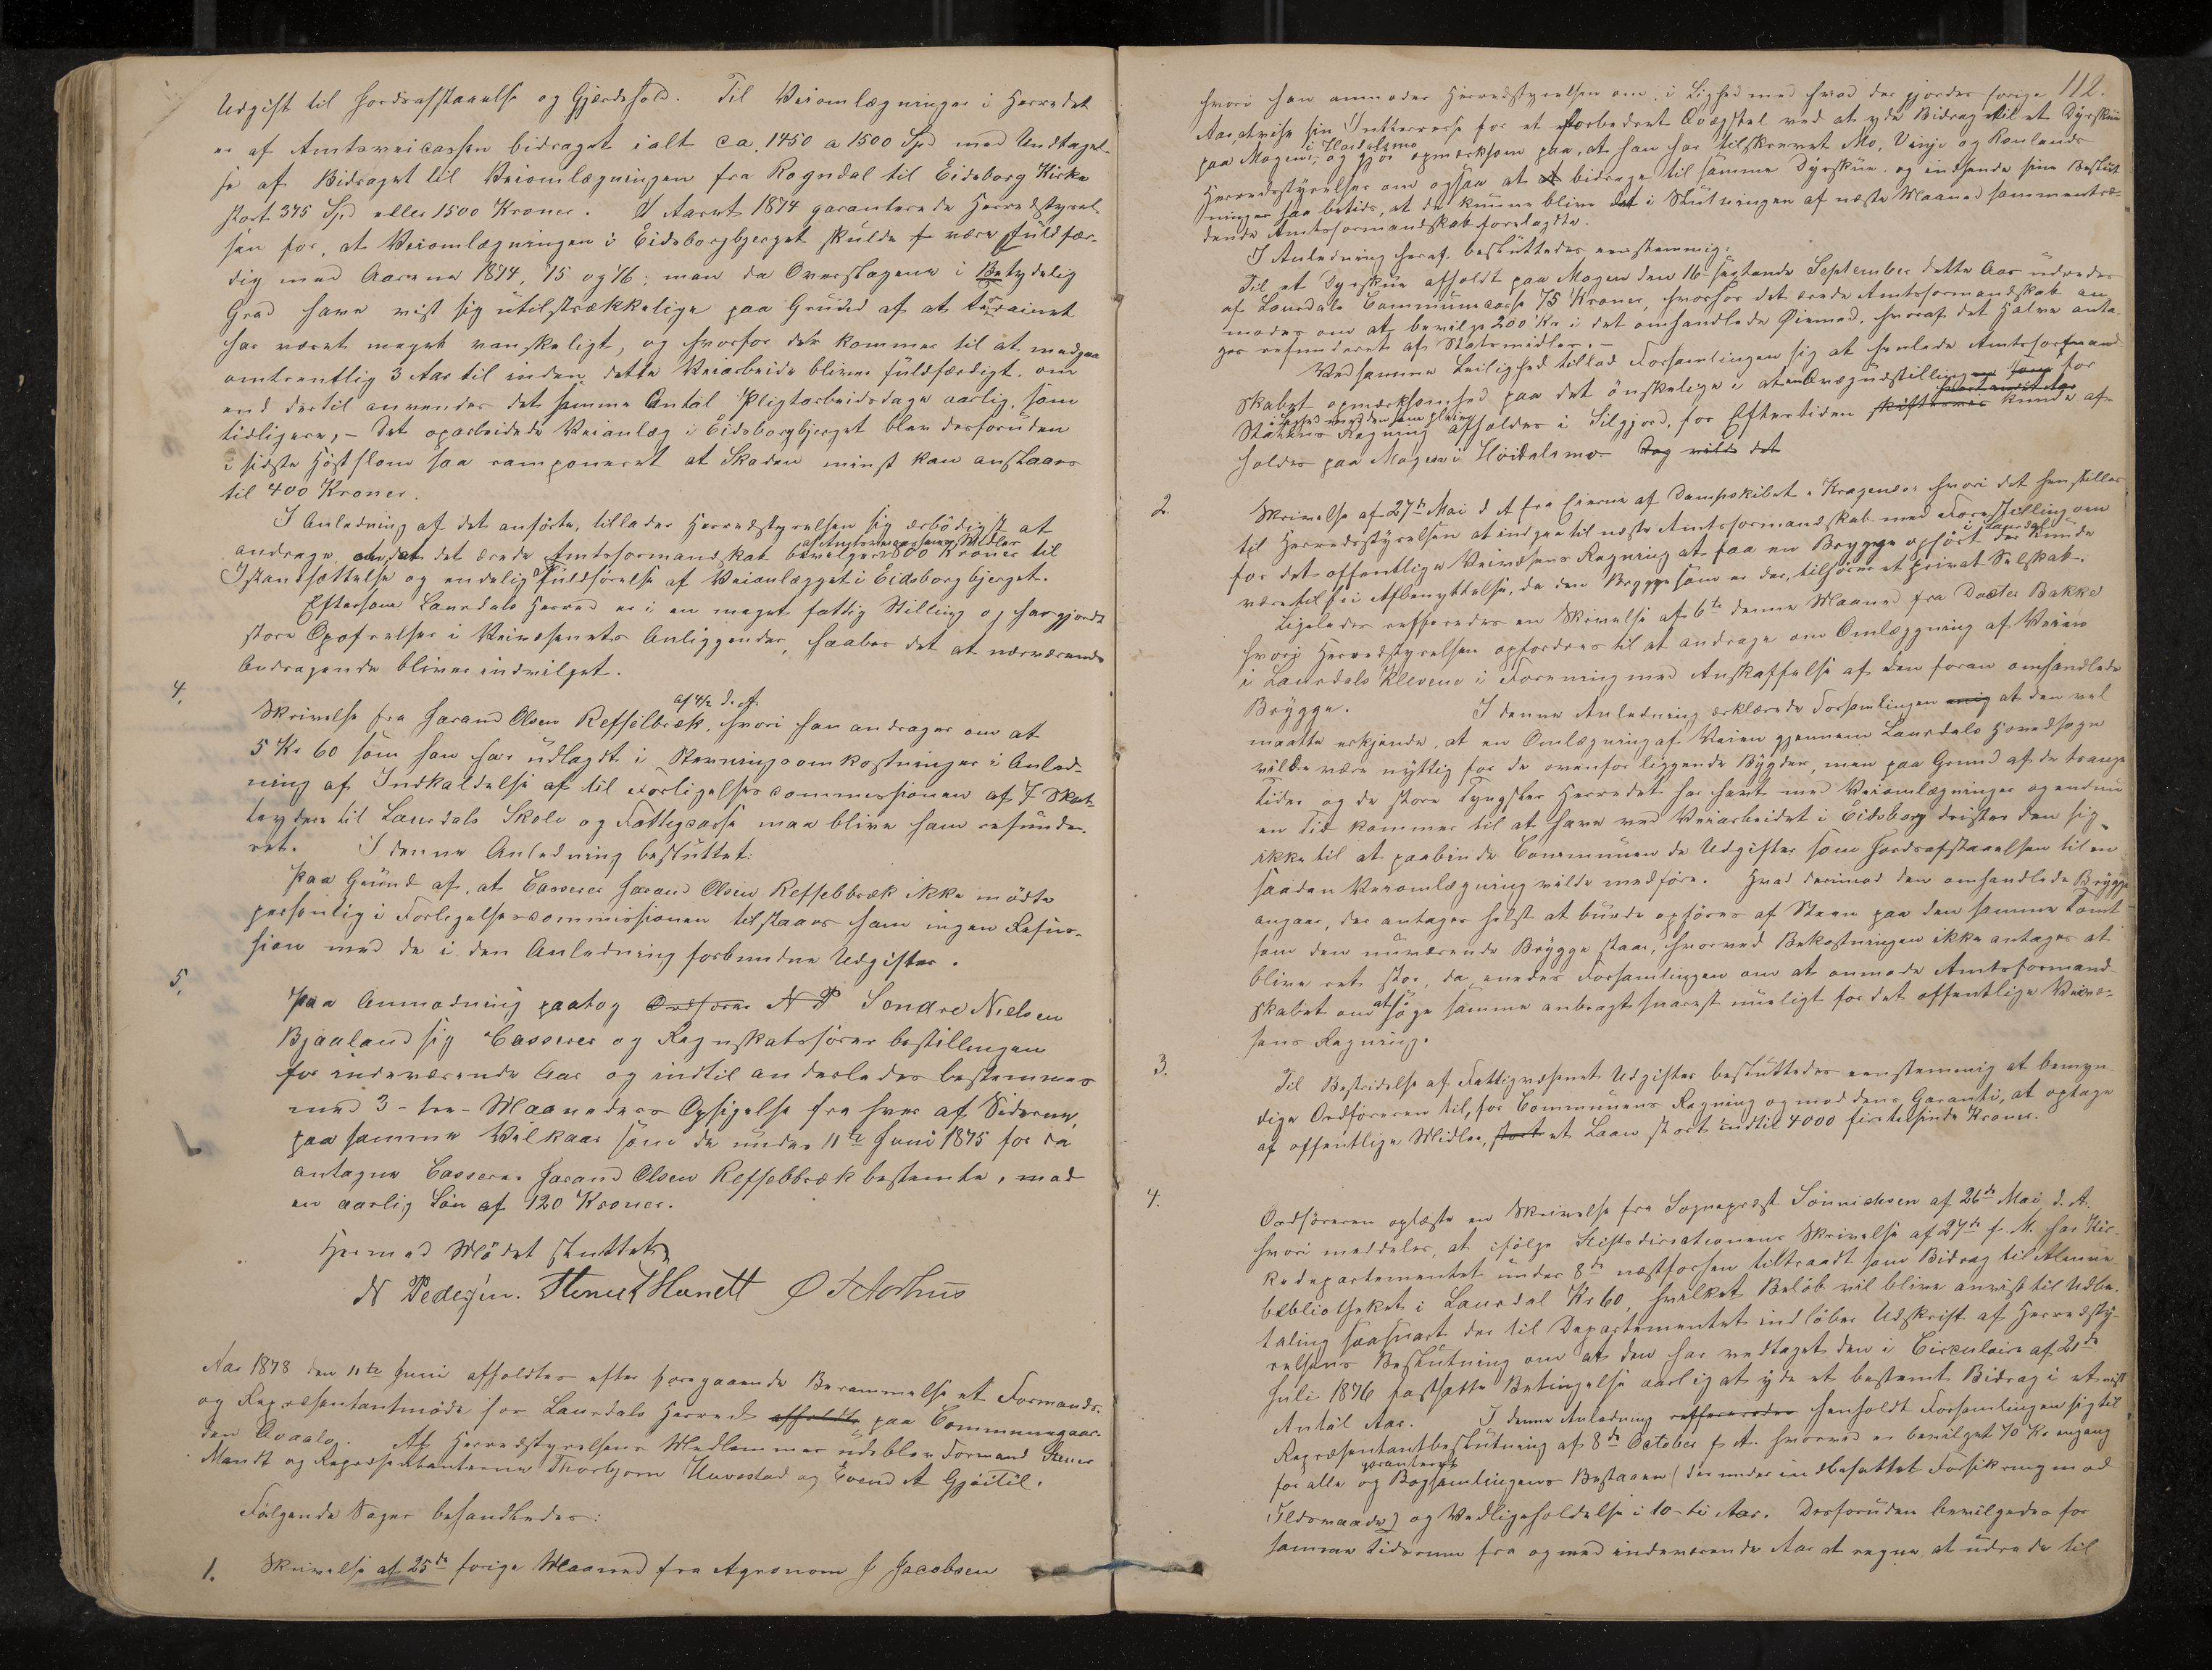 Udgift til Jordafstaaelse og Gjærdehold. Til Veiomlægninger i Herredet
er af Amtsveicassen bidraget ialt ca. 1450 a 1500 Spd med Undtagel-
se af Bidraget til Veiomlægningen fra Rogndal til Eidsborg Kirke
stort 375 Spd eller 1500 Kroner. I Aaret 1874 garanterede Herredstyrel-
sen for, at Veiomlægningen i Eidsborgbjerget skulde være fuldfær-
dig med Aarene 1874, 75 og 76; men da Overslagene i Betydelig
Grad have vist sig utilstrækkelige paa Grund af at terainet
har været meget vanskeligt, og hvorfor det kommer til at medgaa
omtrentlig 3 Aar til inden dette Veiarbeide bliver fuldfærdigt, om
end dertil anvendes det samme Antal Pligtarbeidsdage aarlig, som
tidligere, - Det oparbeidede Veianlæg i Eidsborgbjerget blev desforuden
i sidste Høstflom saa ramponeret at Skaden mindst kan anslaaes
til 400 Kroner.
I Anledning af det anførte, tillader Herredstyrelsen sig ærbødigst at
andrage om, at det ærede Amtsformandskab af Amtsveicassens Midler bevilger 800 Kroner til
Istandsættelse og endelig Fuldførelse af Veianlægget i Eidsborgbjerget.
Eftersom Laurdals Herred er i en meget fattig Stilling og har gjorde
store Opofrelser i Veivæsenets Anliggender, haabes det at nærværende
Andragende bliver indvilget.
4.
Skrivelse fra Jarand Olsen Reffelbræk, af 4/2 d. A. hvori han andrager om at
5 Kr 60 som han har udlagdt i Stevningsomkostninger i Anled-
ning af Indkaldelse af til Forligelsescommissionen af 7 Skat-
teydere til Laurdals Skole og Fattigcasse maa blive ham refunde-
ret. I denne Anledning besluttet:
Paa Grund af, at Casserer Jarand Olsen Reffelbræk ikke mødte
personlig i Forligelsescommissionen tilstaaes ham ingen Refu-
sion med de i den Anledning forbundne Udgifter.
5.
Paa Anmodning paatog Ordfører N P Sondre Nielsen
Bjaaland sig Casserer og Regnskabsfører bestillingen
for indeværende Aar og indtil anderledes bestemmes
med 3 - tre - Maaneders Opsigelse fra hver af Siderne,
paa samme Vilkaar som de under 11te Juni 1875 for da
antagne Casserer Jarand Olsen Reffelbræk bestemte, med
en aarlig Løn af 120 Kroner.
Hermed Mødet sluttet
N Pedersen. Stener H Mandt Ø T Aarhus
Aar 1878 den 11te Juni afholdtes efter foregaaende Berammelse et Formands-
og Repræsentantmøde for Laurdals Herred afholdt paa Communegaar-
den Qvaalo. Af Herredstyrelsens Medlemmer udeblev Formand Stener
Mandt og Repræsentanterne Thorbjørn Huvestad og Evend A Gjøitil.
Følgende Sager behandledes:
1. Skrivelse af 25de forige Maaned fra Agronom J Jacobsen
112.
hvori han anmoder Herredstyrelsen om, i Lighed med hvad der gjordes forige
Aar, at vise sin Interresse for et forbedret Qvægstel ved at yde Bidrag til et Dyrskue
paa Mogen i Høidalsmo, og gjør opmærksom paa, at han har tilskrevet Mo, Vinje og Raulands
Herredsstyrelser om ogsaa at bidrage til samme Dyrskue og indsende sine Beslut-
ninger saa betids, at de kunne blive det i Slutningen af næste Maaned sammentræ-
dende Amtsformandskab forelagdte.
I Anledning heraf besluttedes eenstemmig:
Til et Dyrskue afholdt paa Mogen den 16- sextende September dette Aar udredes
af Laurdals Communecasse 75 Kroner, hvorfor det ærede Amtsformandskab an-
modes om at bevilge 200 Kr i det omhandlede Øiemed, hvoraf det Halve anta-
ges refunderet af Statsmidler. -
Ved samme Leilighed tillod Forsamlingen sig at henlede Amtsformand-
skabet opmærksomhed paa det ønskelige i at en Qvægudstilling som for
Statens Regning i Lighed med den som pleier afholdes i Silgjord, for Eftertiden skifteviis kunde af-
holdes paa Mogen i Høidalsmo. Dog vilde det
2.
Skrivelse af 27de Mai d A fra Eierne af Dampskibet "Kragenæs" hvori det henstilles
til Herredsstyrelsen at indgaa til næste Amtsformandskab med Forestilling om
for det offentlige Veivæsens Regning at faa en Brygge opført i Laurdal der kunde
være til fri Afbenyttelse, da den Brygge som er der, tilhører et privat Selskab.
Ligeledes refferedes en Skrivelse af 6te denne Maaned fra Docter Bakke
hvori Herredstyrelsen opfordres til at andrage om Omlægning af Veien
i Laurdals Klevene i Forening med Anskaffelse af den foran omhandlede
Brygge. I denne Anledning erklærede Forsamlingen enig at den vel
maatte erkjende, at en Omlægning af Veien gjennem Laurdals Hovedsogn
vilde være nyttig for de ovenfor liggende Bygder, men paa Grund af de trange
Tider og de store Tyngsler Herredet har havt med Veiomlægninger og endnu
en Tid kommer til at have ved Veiarbeidet i Eidsborg drister den sig
ikke til at paabinde Communen de Udgifter som Jordafstaaelsen til en
saadan Veiomlægning vilde medføre. Hvad derimod den omhandlede Brygge
angaar, der antages helst at burde opføres af Steen paa den samme Tomt
som den nuværende Brygge staar, hvorved Bekostningen ikke antages at
blive ret stor, da enedes Forsamlingen om at anmode Amtsformand-
skabet om at søge samme anbragt snarest muligt for det offentlige Veivæ-
sens Regning.
3.
Til Bestridelse af Fattigvæsenets Udgifter besluttedes eenstemmig at bemyn-
dige Ordføreren til, for Communens Regning og mod dens Garanti, at optage
af offentlige Midler, stort et Laan stort indtil 4000 firetusinde Kroner.
4.
Ordføreren oplæste en Skrivelse fra Sognepræst Sønnichsen af 26de Mai d. A.
hvori meddeles, at ifølge Stiftsdirectionens Skrivelse af 27de f. M. har Kir-
kedepartementet under 8de næstforhen tiltraadt som Bidrag til Almue-
bebliotheket i Laurdal Kr 60, hvilket Beløb vil blive anvist til Udbe-
taling saasnart der til Departementet indløber Udskrift af Herredsty-
relsens Beslutning om at den har vedtaget den i Circulaire af 21de
Juli 1876 fastsatte Betingelse aarlig at yde et bestemt Bidrag i et vist
Antal Aar. I denne Anledning refferereder henholdt Forsamlingen sig til
Repræsentantbeslutning af 8de October f. A. hvorved er bevilget 70 Kr engang
for alle og garanteret Bogsamlingens Bestaaen (derunder indbefattet Forsikring mod
Ildsvaade) og Vedligeholdelse i 10 - ti Aar. Desforuden bevilgedes for
samme Tidsrum fra og med indeværende Aar at regne, at udrede til